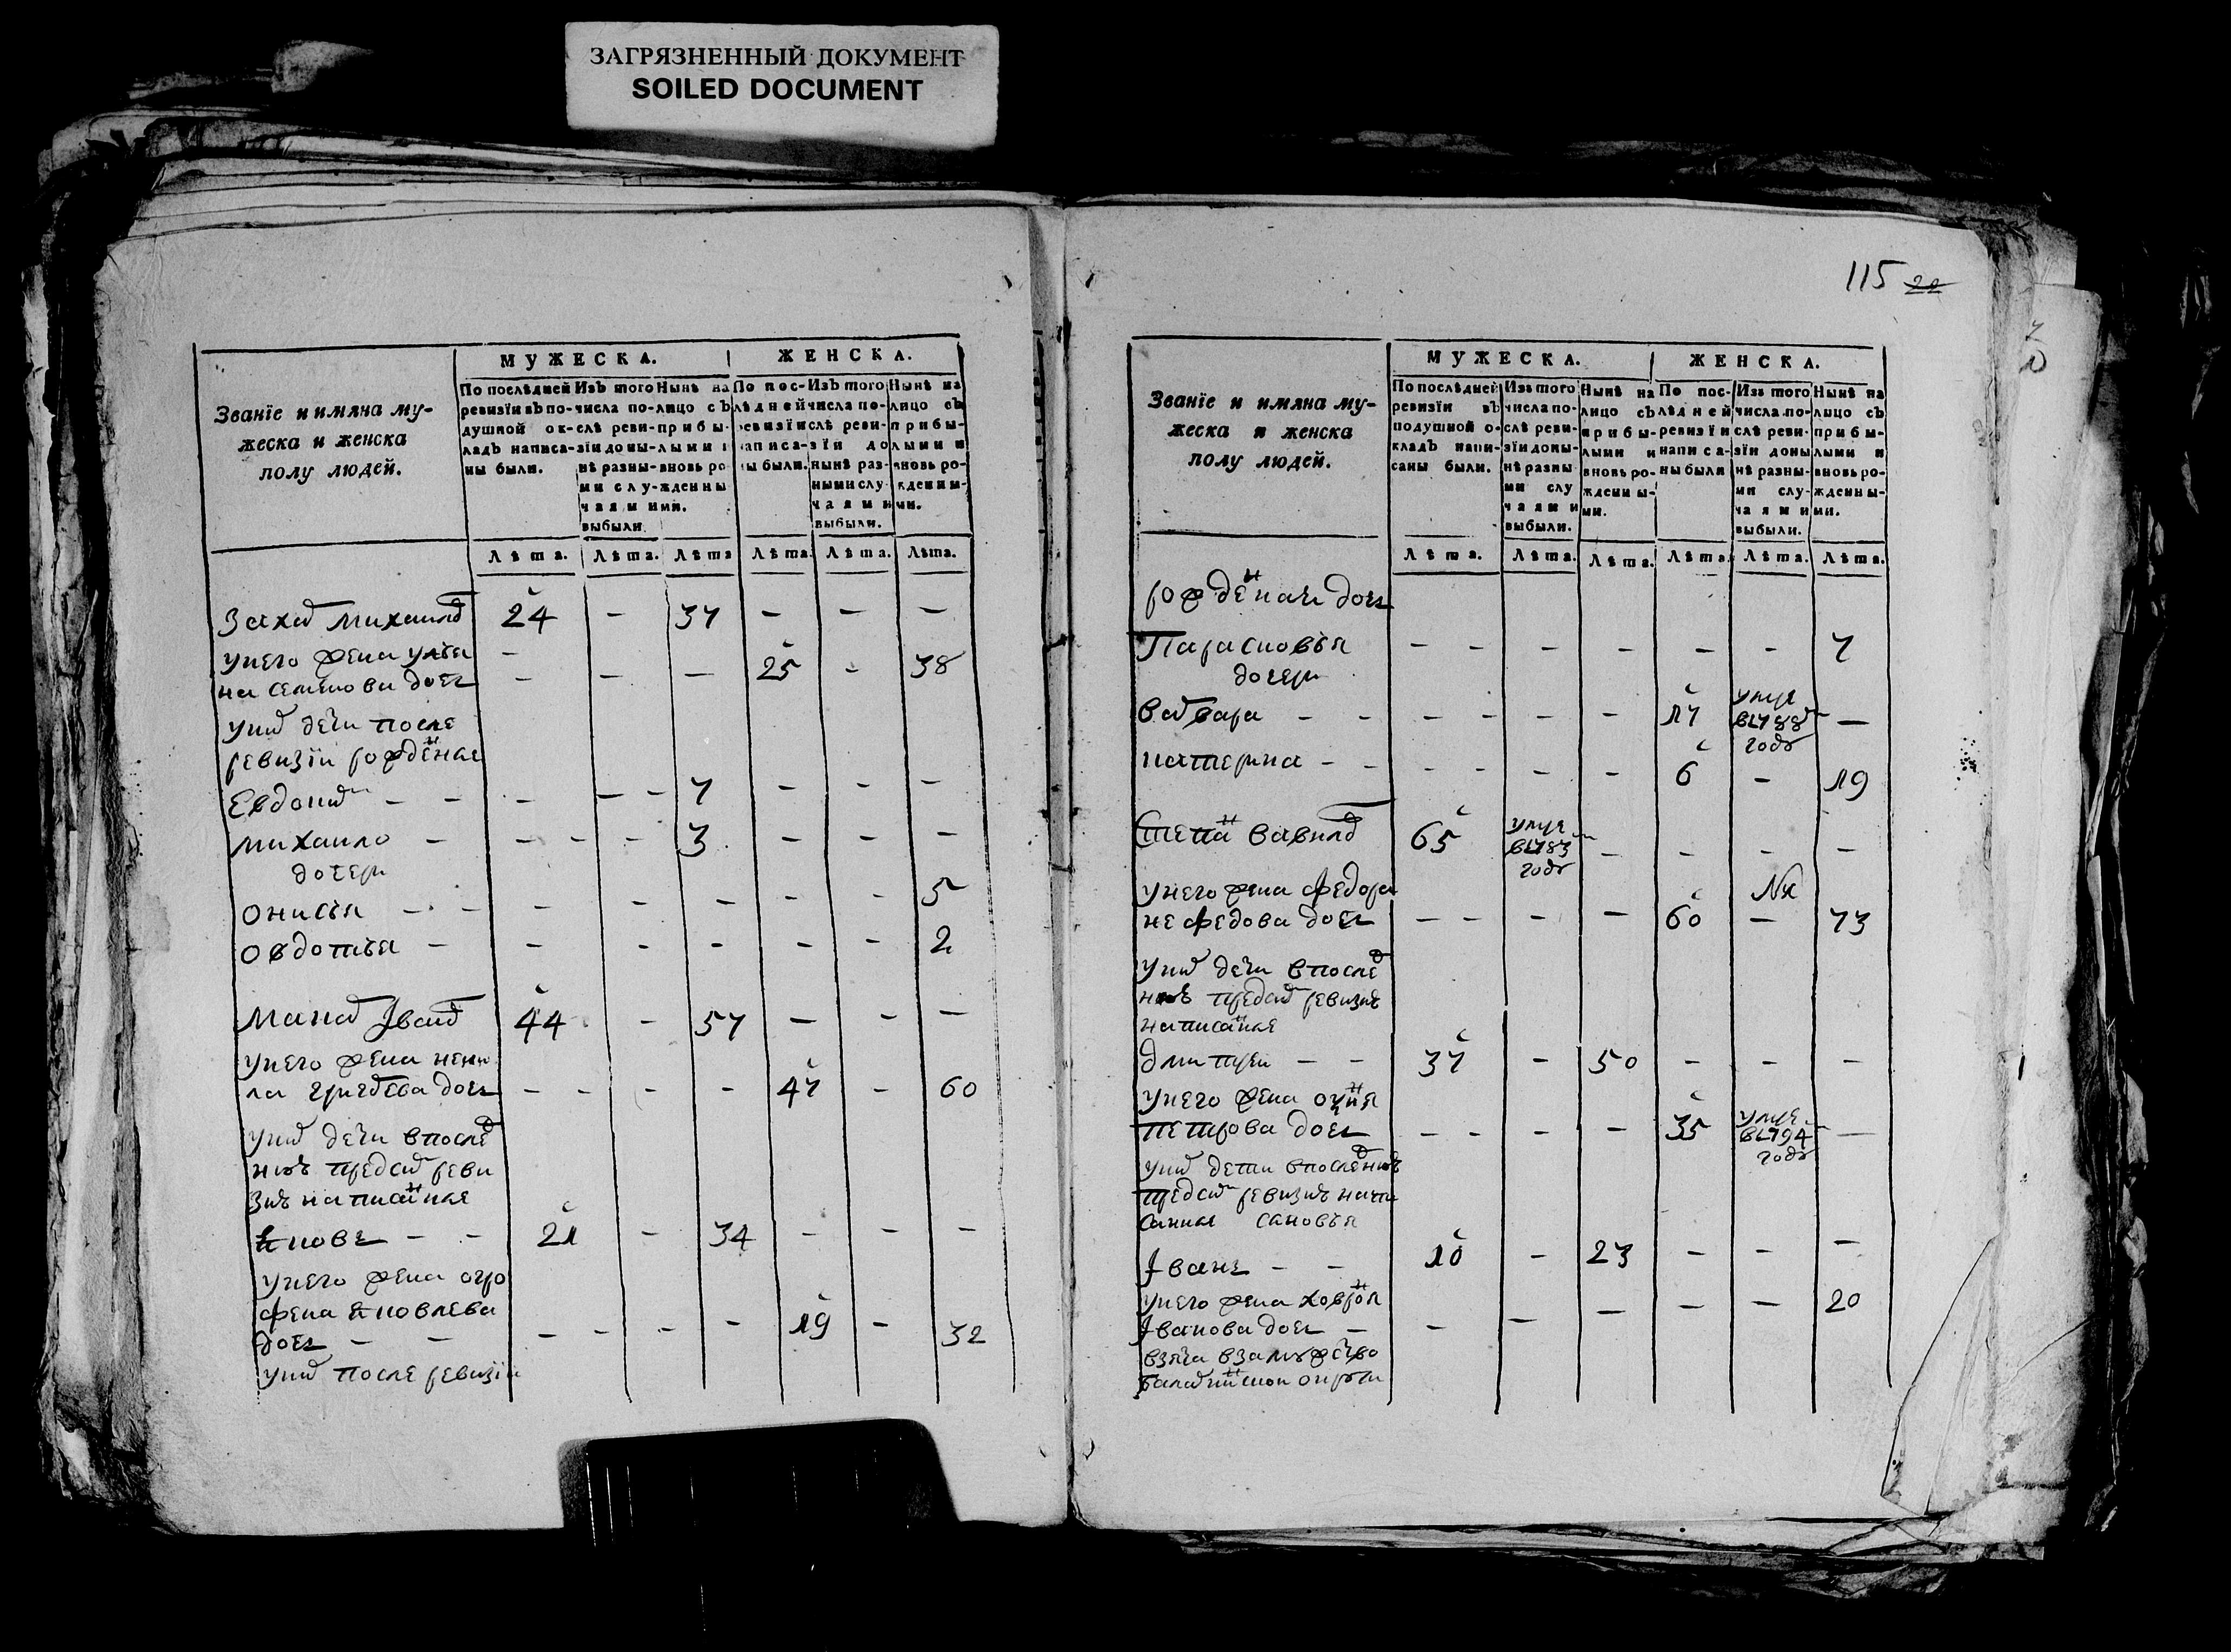 ЗАГРЯЗНЕННЫЙ ДОКУМЕНТ
SOILED DOCUMENT
115 22
Званїе и имяна му-
жеска и женска
полу людей.
МУЖЕСКА.
ЖЕНСКА.
По послѣдней ревизїи въ по-душной ок-ладъ написа-ны были.
Изъ того числа по-слѣ реви-зїи доны-нѣ разны-ми слу-чаями выбыли.
Нынѣ на лицо съ прибы-лыми и вновь ро-жденны-ми.
По пос-лѣдней ревизїи написа-ны были.
Изъ того числа по-слѣ реви-зїи до нынѣ раз-ными слу-чаями выбыли.
Нынѣ на лицо съ прибы-лыми и вновь ро-жденны-ми.
Лѣта. Лѣта. Лѣта Лѣта. Лѣта. Лѣта.
Захаръ Михаилъ 24 – 37 – – –
у него жена улья –
на семенова дочь – – – 25 – 38
у них дети после
ревизїи рожденые
Евдоким – – – – – 7 – – –
михаило – – – – 3 – – –
дочери
онисья – – – – – – – – 5
овдотья – – – – – – 2
Иванъ 44 – 57 – – –
у него жена нени
ла дочь – – – – 47 – 60
у них дети в послед
ней пред сим реви
зие написанные
яковъ – – 21 – 34 – – –
у него жена огро
фена яковлева
дочь – – – – – – 19 – 32
у них после ревизїи
Званїе и имяна му-
жеска и женска
полу людей.
МУЖЕСКА.
ЖЕНСКА.
По послѣдней ревизїи въ подушной о-кладъ напи-саны были.
Изъ того числа по-слѣ реви-зїи доны-нѣ разны-ми слу-чаями выбыли.
Нынѣ на лицо съ прибы-лыми и вновь ро-жденны-ми.
По пос-лѣдней ревизїи написа-ны были
Изъ того числа по-слѣ реви-зїи доны-нѣ разны-ми слу-чаями выбыли.
Нынѣ на лицо съ прибы-лыми и вновь ро-жденны-ми.
Лѣта. Лѣта. Лѣта. Лѣта. Лѣта. Лѣта.
рожденная дочь
Парасковья – – – – – – 7
дочери
варвара – – – – – – 17 умре в 1788м году –
катерина – – – – – – 6 – 19
Степан вавилъ 65 умре в 1783м году – – – –
у него жена федора
нефедова дочь – – – – 60 – 73
у них дети в послед
ней пред сим ревизие
написанные
дмитрей – – 37 – 50 – – –
у него жена
петрова дочь – – – – 35 умре в 1794м году –
у них дети в последней
пред сим ревизие напи
санные сыновья
Иванъ – – 10 – 23 – – –
у него жена хаврон
Иванова дочь – – – – – – 20
взята в замужество